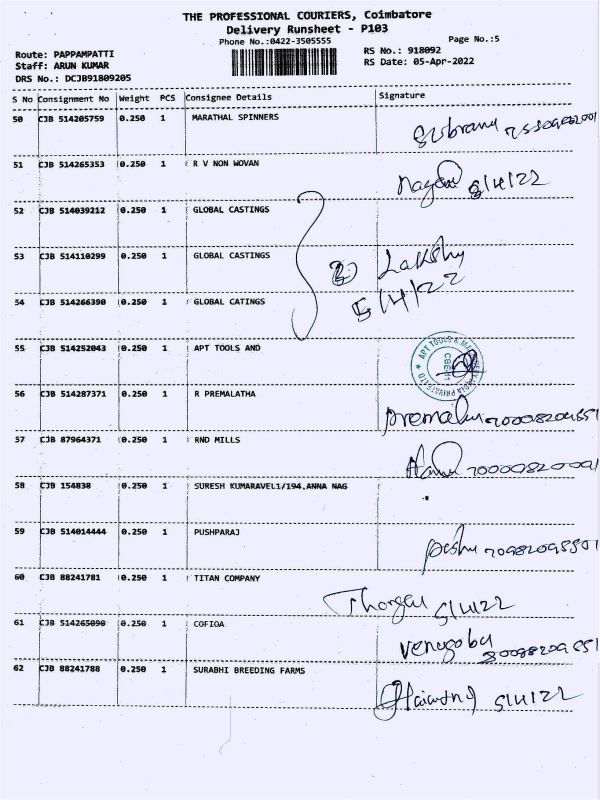 THE PROFESSIONAL COURIERS, Coimbatore
Delivery Runsheet - P103
Phone No.:0422-3505555
Page No.:5
Route: PAPPAMPATTI
RS No.: 918092
Staff: ARUN KUMAR
RS Date: 05-Apr-2022
DRS No.: DCJB91809205
S No Consignment No Weight PCS Consignee Details Signature
50 CJB 514205759 0.250 1 MARATHAL SPINNERS
51 CJB 514265353 0.250 1 R V NON WOVAN
5/4/22
52 CJB 514039212 0.250 1 GLOBAL CASTINGS
53 CJB 514110299 0.250 1 GLOBAL CASTINGS
3 Lakshy
5/4/22
54 CJB 514266390 0.250 1 GLOBAL CATINGS
55 CJB 514252043 0.250 1 APT TOOLS AND
APT TOOLS &
56 CJB 514287371 0.250 1 R PREMALATHA
57 CJB 87964371 0.250 1 RND MILLS
58 CJB 154838 0.250 1 SURESH KUMARAVEL1/194,ANNA NAG
59 CJB 514014444 0.250 1 PUSHPARAJ
60 CJB 88241781 0.250 1 TITAN COMPANY
5/4/22
61 CJB 514265090 0.250 1 COFIOA
62 CJB 88241788 0.250 1 SURABHI BREEDING FARMS
5/4/22